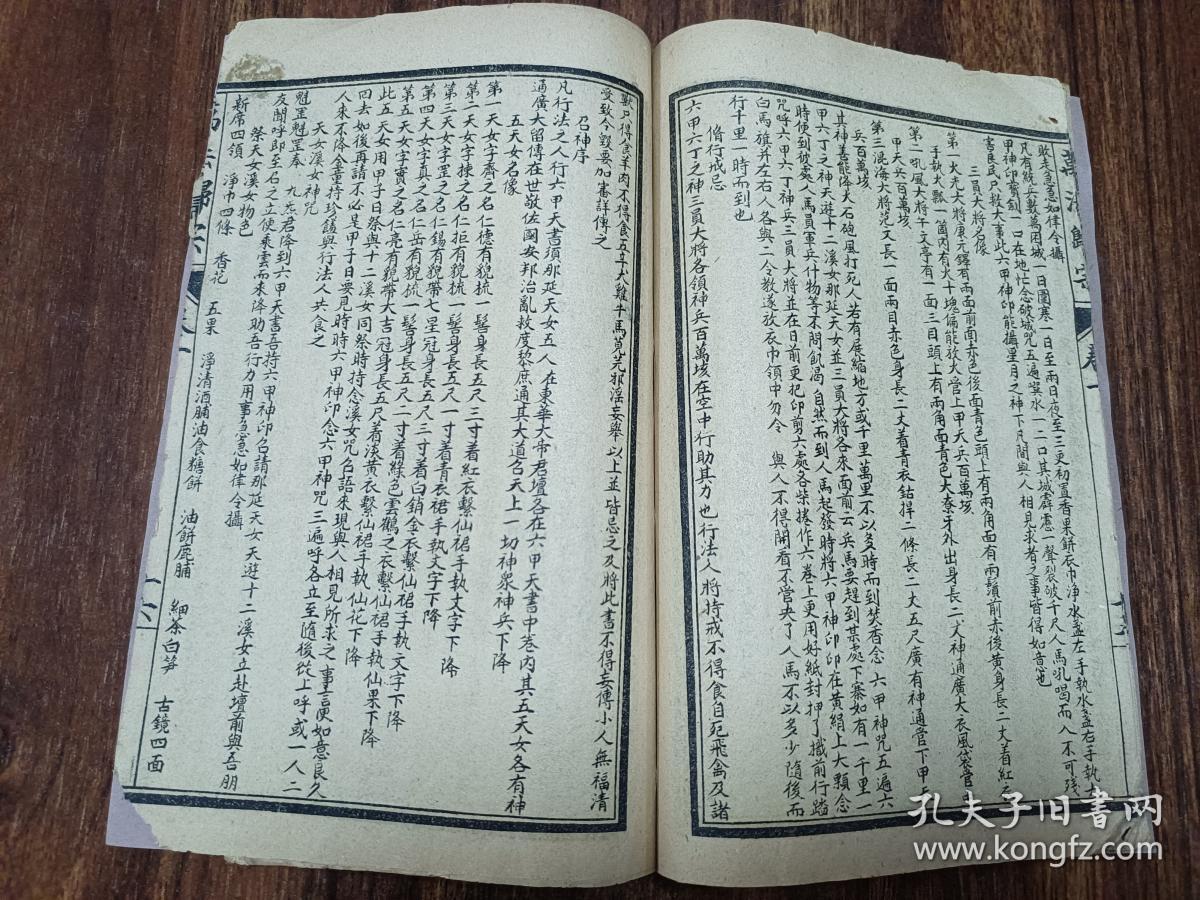 萬法歸宗 卷一
敗走急急如律令攝
凡有賊兵數萬困城一日圍寨一日至兩日夜至三更初置香果餅衣巾淨水盞左手執水盞右手執六
甲神印寶劍一口在地忙念破城咒五遍噀水一二口其城霹靂一聲裂破千尺人馬吼喝而入不可殘
害良民只救大事此六甲神印能攝星月之神下凡間與人相見求者之事皆得如意也
三員大將名像
第一火光大將庚元鐸有兩面前面赤色後面青色頭上有兩角面有兩鬚前赤後黃身長二丈着紅衣
手執火瓢一箇內有火十塊偏能放火營上甲天兵百萬垓
第二吼風大將于文亭有一面三目頭上有兩角面青色大獠牙外出身長二丈神通廣大衣風袋管
甲天兵百萬垓
第三混海大將范文長一面兩目赤色身長二丈着青衣鈷捍二條長二丈五尺廣有神通管下甲天
兵百萬垓
其神善能降大石砲風打死人若有展縮地方或千萬里不以多時而到焚香念六甲神咒五遍六
甲六丁之神天遊十二溪女那延天女並三員大將各來面前云兵馬要趕到某處下寨如有一千里一
時便到彼處人馬員軍兵什物等不問飢渴自然而到人馬起發時將六甲神印印在黃絹上大顆念
咒呼六甲六丁神兵三員大將並在目前更把印剪六處各柴捲作六卷上更用好紙封押了攕前行踏
白馬旗并左右人各與二令教遂放衣巾領中勿令 與人不得開看不管失了人馬不以多少隨後而
行千里一時而到也
脩行戒忌
六甲六丁之神三員大將各領神兵百萬垓在空中行助其力也行法人將持戒不得食自死飛禽及諸
獸只得食羊肉不得食五辛犬雞牛馬葱羌邪淫妄舉以上並皆忌之及將此書不得妄傳小人無福清
受致令毀要加審詳傳之
召神序
凡行法之人行六甲天書須那延天女五人在東華大帝君壇各在六甲天書中巻內其五天女各有神
通廣大留傳在世敬佐國安邦治亂救度黎庶通其大道名天上一切神衆神兵下降
五天女名像
第一天女字齊之名仁德有貌梳一髻身長五尺三寸着紅衣繫仙裙手執文字下降
第二天女字揀之名仁拒有貌梳一髻身長五尺一寸着青衣裙手執文字下降
第三天女字罡之名仁錫有貌帶七星冠身長五尺三寸着白銷金衣繫仙裙手執文字下降
第四天女字真之名仁岳有貌梳一髻身長五尺二寸着綠色雲鶴之衣繫仙裙手執仙果下降
第五天女字賣之名仁亮有貌帶大吉冠身長五尺着淡黃衣繫仙裙手執仙花下降
此五天女用甲子日祭與十二溪女同祭時持念溪女咒名語來現與人相見所求之事言便如意良久
回去如後再請不必是甲子日要見時時六甲神印念六甲神咒三遍呼各立至隨後從上呼或一人二
人來不降金童持珍議與行法人共食之
天女溪女神咒
魁罡魁罡奉 九炁君降到六甲天書吾持六甲神印召請那延天女天遊十二溪女立赴壇前與吾朋
友聞呼即至召之立便乘雲而來降助吾行力用事急急如律令攝
祭天女溪女物色
新席四領 淨巾四條 香花 五果 淨清酒脯油食糖餅 油餅鹿脯 細茶白笋 古鏡四面
萬法歸宗 卷一 六
孔夫子旧书网
www.kongfz.com